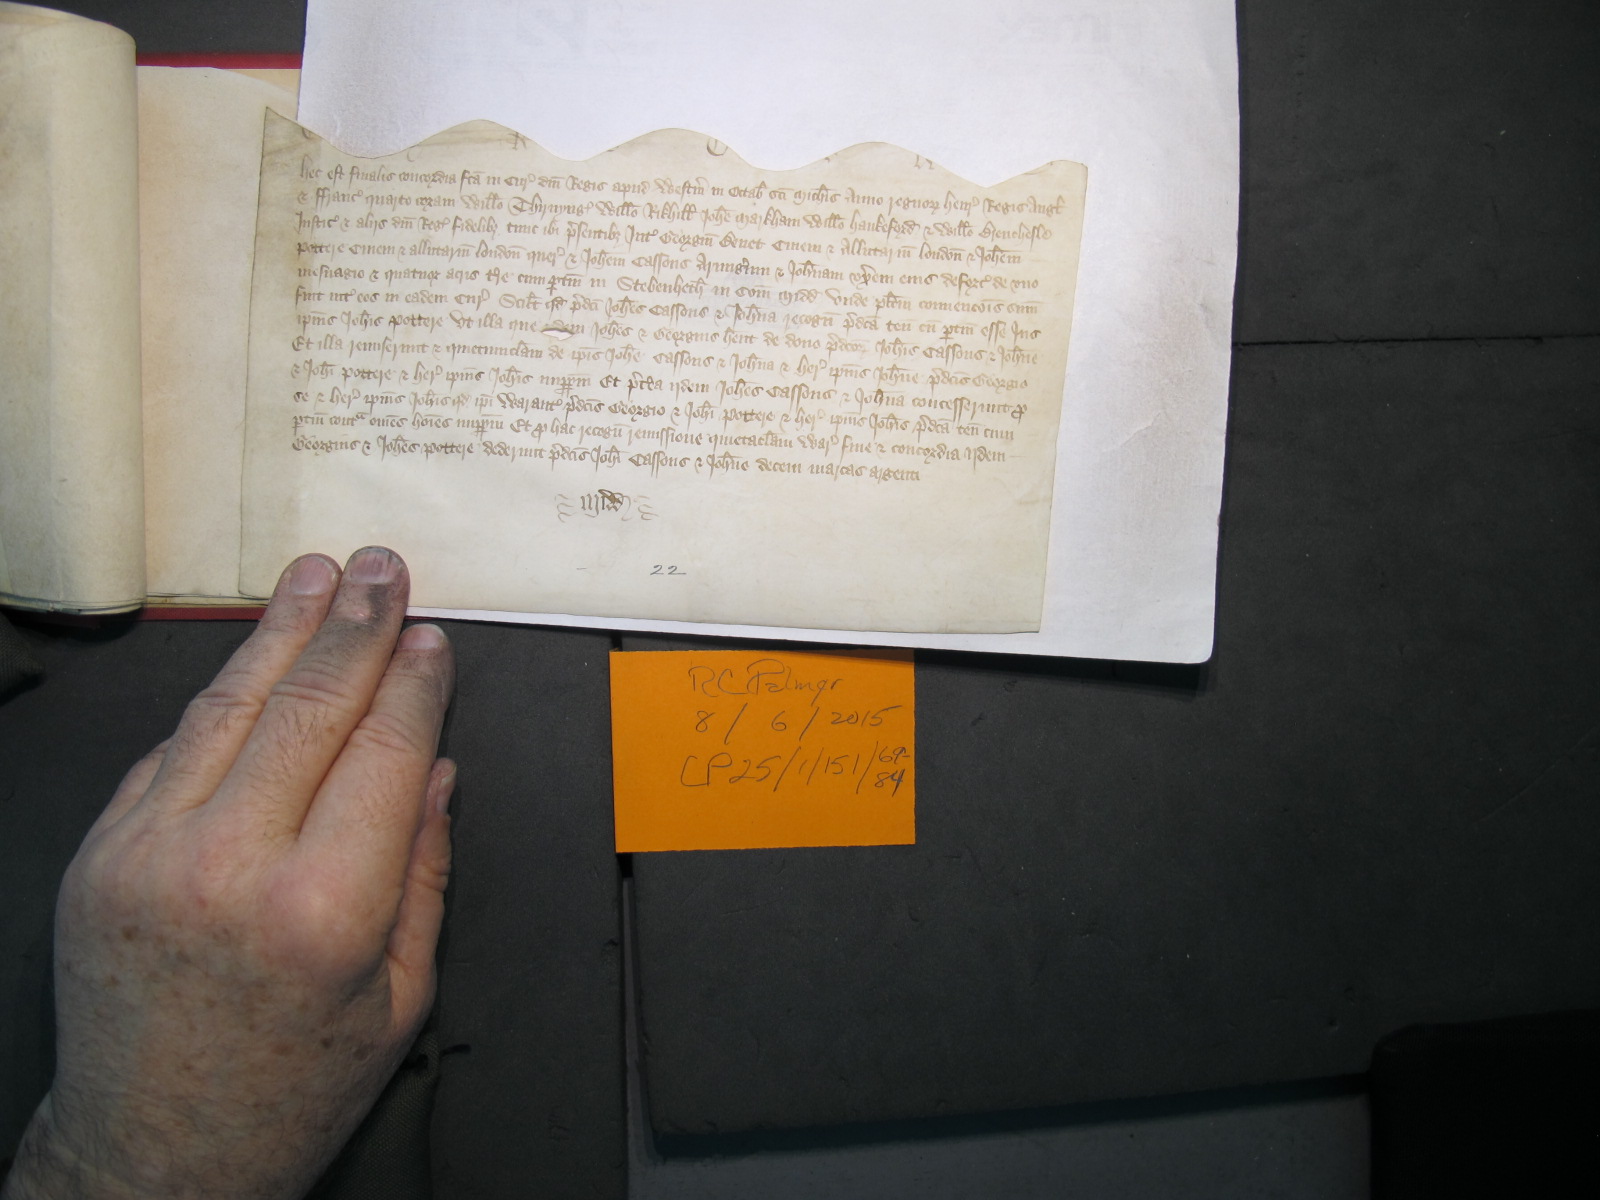 hec est finalis concordia fc̄a in Cur' dn̄i Regis apud Westm̄ in Octab' sc̄i Mich̄is Anno regnorꝝ henr' Regis Angl'
& ffranc' quarto coram Will̄o Thirnyng' Will̄o Rikhill' Joh̄e Markham Will̄o hankeford' & Will̄o Brenchesle
Justic' & aliis dn̄i Reg' fidelib; tunc ibi p̄sentib; Int' Georgiū Benet Ciuem & Allutariū london̄ & Joh̄em
Pottere Ciuem & allutariū london̄ quer' & Joh̄em Cassons & Joh̄nam vx̄em eius deforc' de vno
mesuagio & quatuor acris t̄re cum ꝑtin̄ in Stebenheth' in Com̄ Midd' Vnde pl̄itm conuenc̄ois sum̄
fuit int' eos in eadem Cur' Scil̄t qd' p̄dc̄i Joh̄es Cassons & Joh̄na recogn̄ p̄dc̄a ten̄ cū ꝑtin̄ esse Jus
ip̄ius Joh̄is Pottere Vt illa que idem Joh̄es & Georgius h̄ent de dono p̄dc̄orꝝ Joh̄is Cassons & Joh̄ne
Et illa remiserunt & quietumclam̄ de ip̄is Joh̄e Cassons & Joh̄na & her' ip̄ius Joh̄ne p̄dc̄is Georgio
& Joh̄i Pottere & her' ip̄ius Joh̄is imꝑpm̄ Et p̄t̄ea ijdem Joh̄es Cassons & Joh̄na concesserunt ꝓ
se & her' ip̄ius Joh̄ne qd' ip̄i Warant' p̄dc̄is Georgio & Joh̄i Pottere & her' ip̄ius Joh̄is p̄dc̄a ten̄ cum
ꝑtin̄ contᵃ om̄es hoīes imꝑpm̄ Et ꝓ hac recogn̄ remissione quietaclam̄ War' fine & concordia ijdem
Georgius & Joh̄es Pottere dederunt p̄dc̄is Joh̄i Cassons & Joh̄ne decem marcas argenti
Midd'
22
RC Palmer
8 / 6 / 2015
CP 25/1/151/69-
84